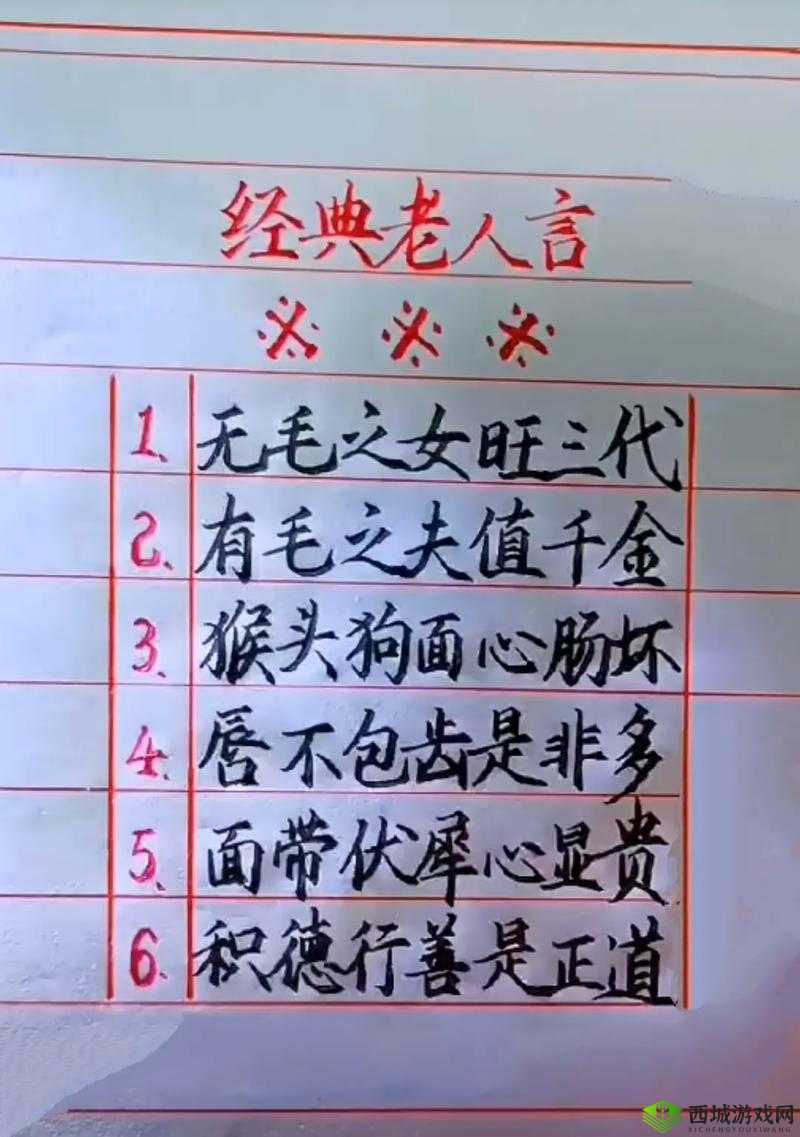 经典老人言
※ ※ ※
1. 无毛之女旺三代
2. 有毛之夫值千金
3. 猴头狗面心肠坏
4. 唇不包齿是非多
5. 面带伏犀心显贵
6. 积德行善是正道
西城游戏网
XICHENGYOUXIWANG